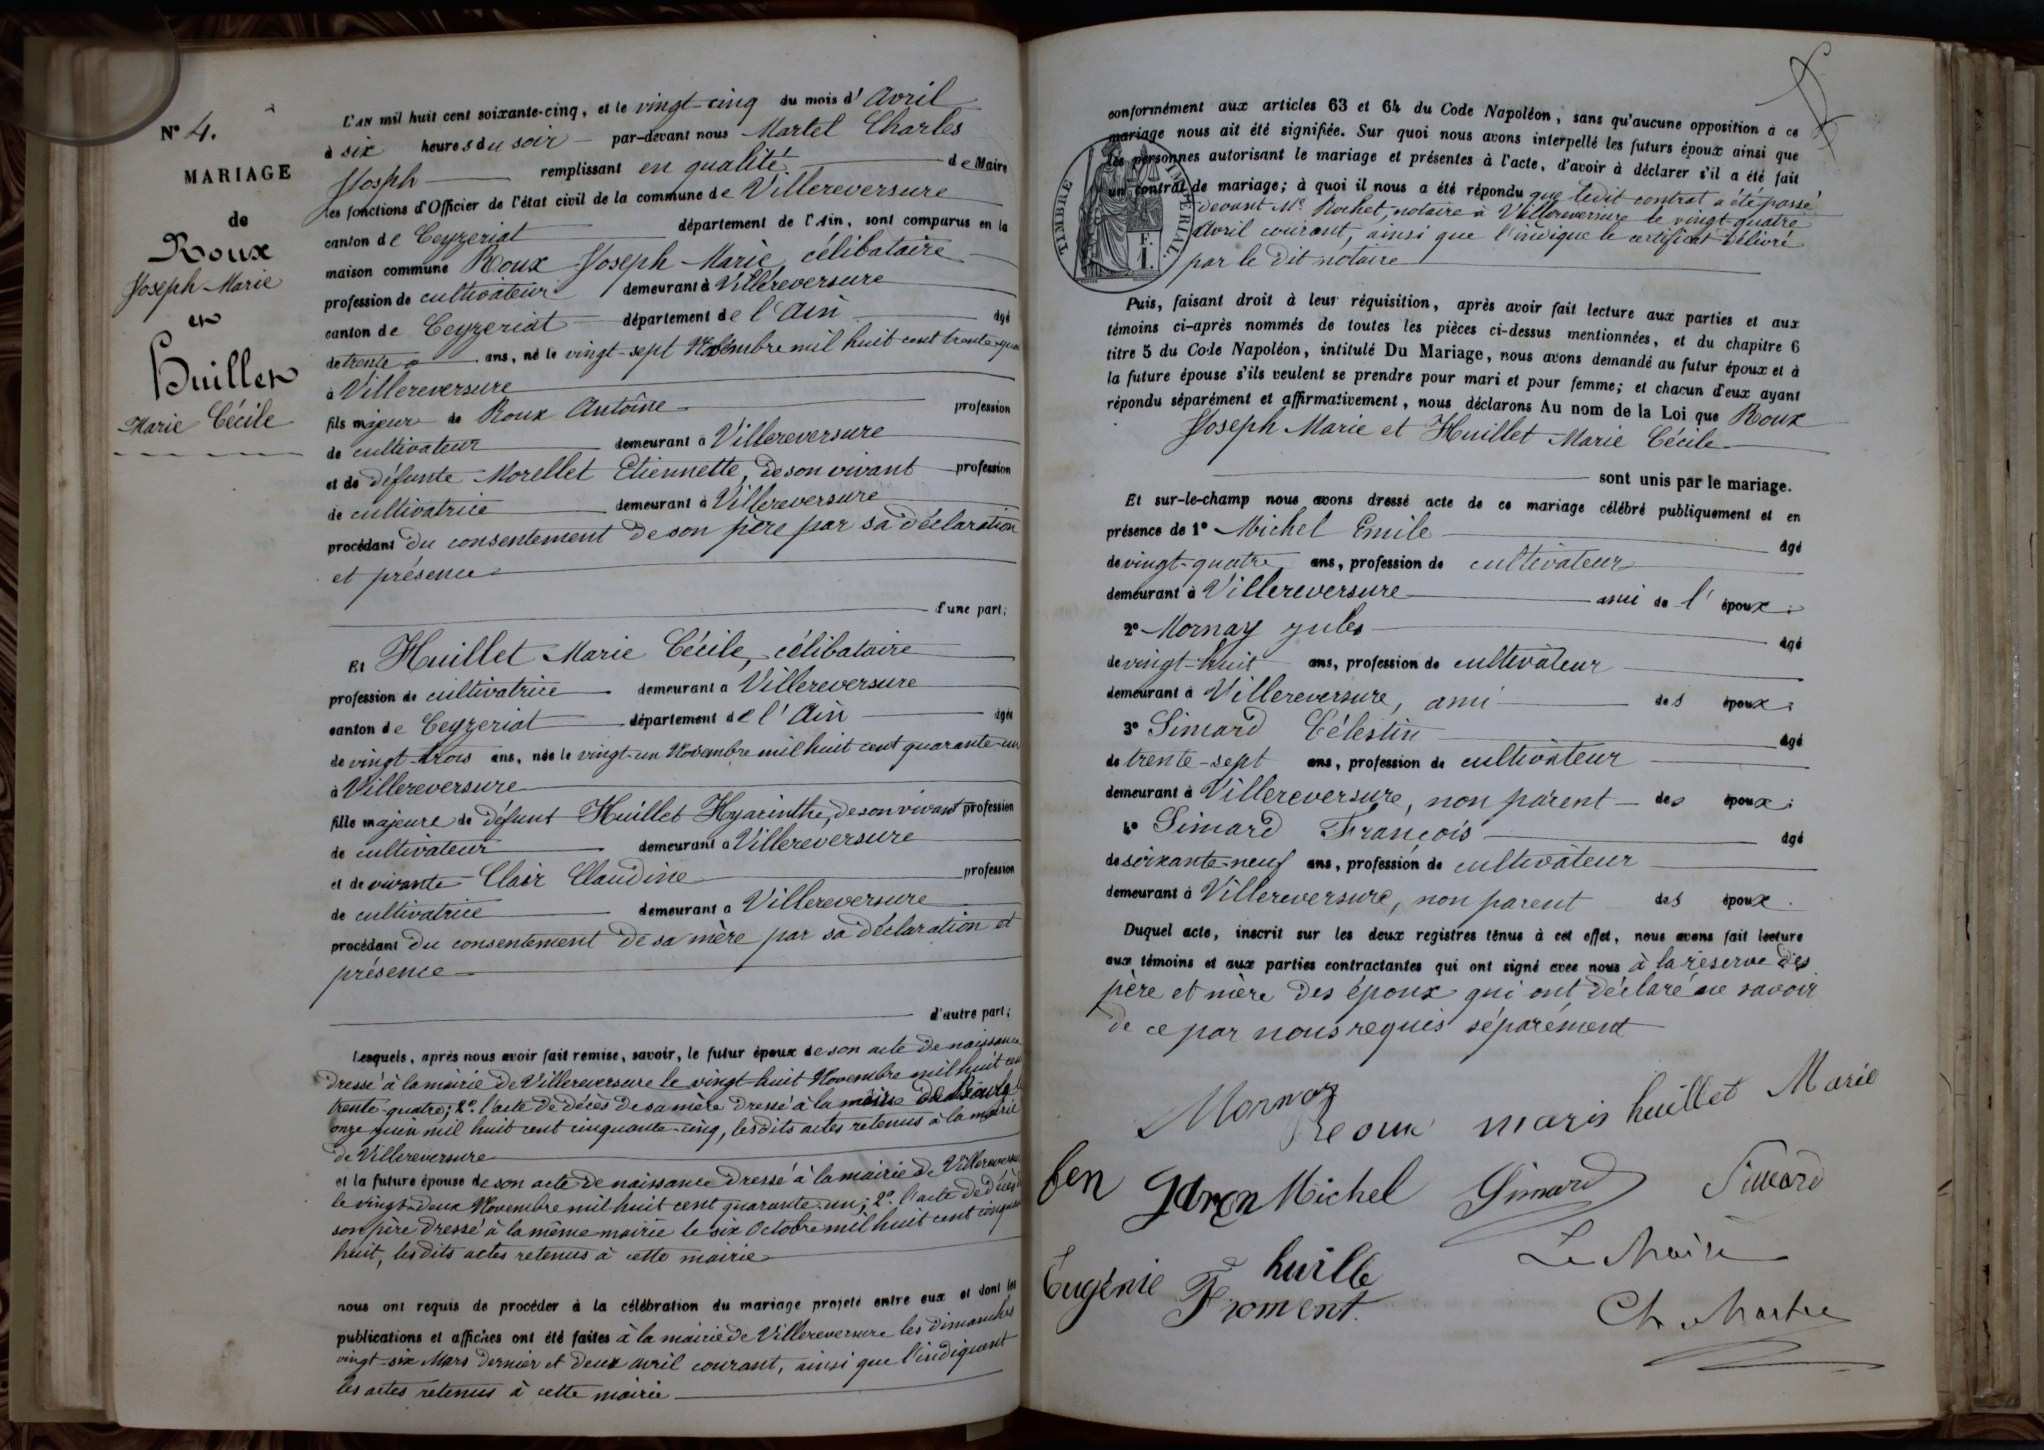 N° 4.
MARIAGE
de
Roux
Joseph Marie
et
Huillet
Marie Cécile
L'AN mil huit cent soixante-cinq, et le vingt-cinq du mois d'Avril
à six heures du soir par-devant nous Martel Charles
Joseph remplissant en qualité de Maire
les fonctions d'Officier de l'état civil de la commune de Villereversure
canton de Ceyzeriat département de l'Ain, sont comparus en la
maison commune Roux Joseph Marie, célibataire
profession de cultivateur demeurant à Villereversure
canton de Ceyzeriat département de l'Ain âgé
de trente ans, né le vingt-sept Novembre mil huit cent trente-
à Villereversure
fils majeur de Roux Antoine profession
de cultivateur demeurant à Villereversure
et de défunte Morellet Etiennette, de son vivant profession
de cultivatrice demeurant à Villereversure
procédant du consentement de son père par sa déclaration
et présence
d'une part;
Et Huillet Marie Cécile, célibataire
profession de cultivatrice demeurant à Villereversure
canton de Ceyzeriat département de l'Ain âgée
de vingt-trois ans, née le vingt-un Novembre mil huit cent quarante-un
à Villereversure
fille majeure de défunt Huillet Hyacinthe, de son vivant profession
de cultivateur demeurant à Villereversure
et de vivante Clair Claudine profession
de cultivatrice demeurant à Villereversure
procédant du consentement de sa mère par sa déclaration et
présence
d'autre part;
Lesquels, après nous avoir fait remise, savoir, le futur époux de son acte de naissance
dressé à la mairie de Villereversure le vingt-huit Novembre mil huit cent
trente-quatre; 2°. l'acte de décès de sa mère dressé à la
onze juin mil huit cent cinquante-cinq, lesdits actes retenus à la mairie
de Villereversure
et la future épouse de son acte de naissance dressé à la mairie de Villereversure
le vingt-deux Novembre mil huit cent quarante-un; 2°. l'acte de décès
son père dressé à la même mairie le six Octobre mil huit cent
huit, lesdits actes retenus à cette mairie
nous ont requis de procéder à la célébration du mariage projeté entre eux et dont les
publications et affiches ont été faites à la mairie de Villereversure les dimanches
vingt-six Mars dernier et deux avril courant, ainsi que l'indiquent
les actes retenus à cette mairie
conformément aux articles 63 et 64 du Code Napoléon, sans qu'aucune opposition à ce
mariage nous ait été signifiée. Sur quoi nous avons interpellé les futurs époux ainsi que
les personnes autorisant le mariage et présentes à l'acte, d'avoir à déclarer s'il a été fait
un contrat de mariage; à quoi il nous a été répondu que ledit contrat a été passé
devant Me Rochet, notaire à Villereversure le vingt-quatre
Avril courant, ainsi que l'indique le certificat délivré
par le dit notaire
TIMBRE IMPÉRIAL.
F.
1.
Puis, faisant droit à leur réquisition, après avoir fait lecture aux parties et aux
témoins ci-après nommés de toutes les pièces ci-dessus mentionnées, et du chapitre 6
titre 5 du Code Napoléon, intitulé Du Mariage, nous avons demandé au futur époux et à
la future épouse s'ils veulent se prendre pour mari et pour femme; et chacun d'eux ayant
répondu séparément et affirmativement, nous déclarons Au nom de la Loi que Roux
Joseph Marie et Huillet Marie Cécile
sont unis par le mariage.
Et sur-le-champ nous avons dressé acte de ce mariage célébré publiquement et en
présence de 1° Michel Emile âgé
de vingt-quatre ans, profession de cultivateur
demeurant à Villereversure ami de l'époux;
2° Mornay Jules âgé
de vingt-huit ans, profession de cultivateur
demeurant à Villereversure, ami des époux;
3° Simard Célestin âgé
de trente-sept ans, profession de cultivateur
demeurant à Villereversure, non parent des époux;
4° Simard François âgé
de soixante-neuf ans, profession de cultivateur
demeurant à Villereversure, non parent des époux.
Duquel acte, inscrit sur les deux registres tenus à cet effet, nous avons fait lecture
aux témoins et aux parties contractantes qui ont signé avec nous à la réserve des
père et mère des époux qui ont déclaré ne savoir
de ce par nous requis séparément
Mornay
Roux maris huillet Marie
Michel Simard Simard
Le Maire
Eugénie Froment.
Ch Martel